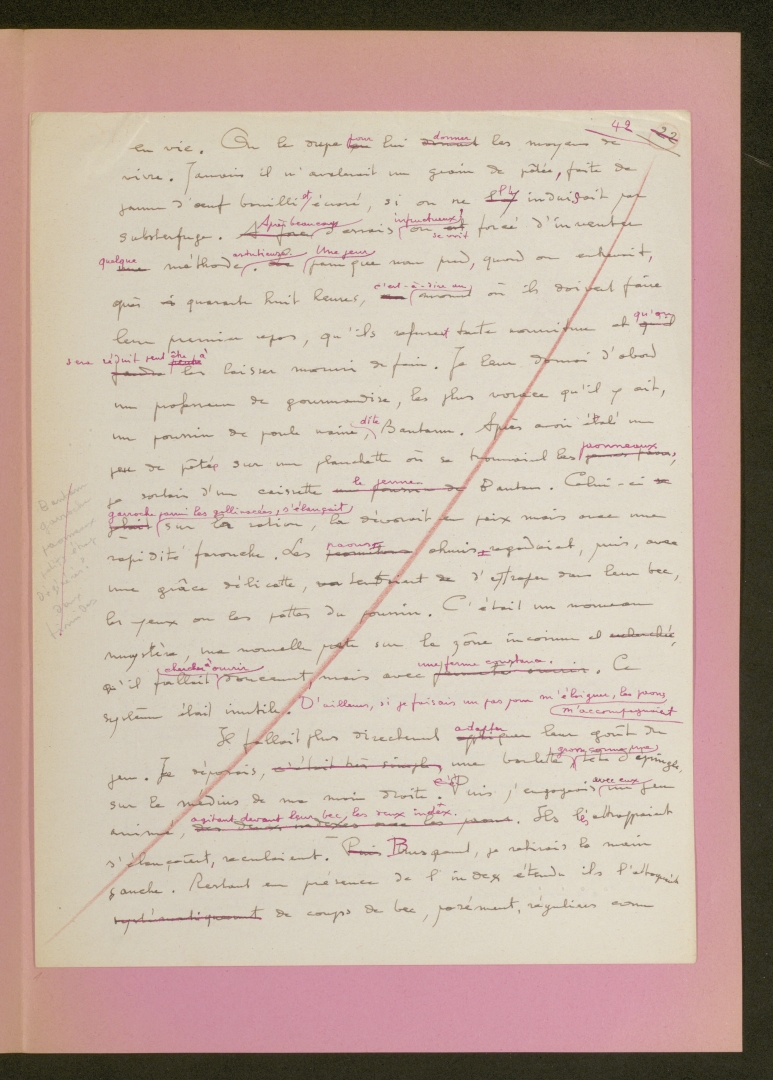 42 22
en vie. On le dupe pour lui donner les moyens de
vivre. Jamais il n'avalerait un grain de pâtée, faite de
jaune d'œuf bouilli et écrasé, si on ne l'y induisait par
subterfuge. Après beaucoup d'essais infructueux, on est se voit forcé d'inventer
quelque une méthode astucieuse. Une peur panique vous prend, quand on entrevoit,
après quarante huit heures, c'est-à-dire au moment où ils doivent faire
leur premier repas, qu'ils refusent toute nourriture et qu'on
sera réduit peut être à les laisser mourir de faim. Je leur donnai d'abord
un professeur de gourmandise, le plus vorace qu'il y ait,
un poussin de poule naine, dite Bantam. Après avoir étalé un
peu de pâtée sur une planchette où se trouvaient les paonneaux,
je sortais d'un caissette le jeune Bantam. Celui-ci
garroche parmi les gallinacées, s'élançait sur la ration, la dévorait en paix mais avec une
rapidité farouche. Les paons ahuris regardaient, puis, avec
une grâce délicate, tentaient d'attraper dans leur bec,
les yeux ou les pattes du poussin. C'était un nouveau
mystère, une nouvelle porte sur la zône inconnue et
qu'il fallait chercher à ouvrir doucement, mais avec une ferme constance. Ce
système était inutile. D'ailleurs, si je faisais un pas pour m'éloigner, les paons
m'accompagnaient
Il fallait plus directement adapter leur goût du
jeu. Je déposais, c'était très simple, une boulette grosse comme une tête d'épingle,
sur le médius de ma main droite. Puis j'engageais avec eux un jeu
animé, agitant devant leur bec, les deux index. Ils les attrappaient
s'élançaient, reculaient. Puis Brusquement, je retirais la main
gauche. Restant en présence de l'index étendu ils l'attaquaient
systématiquement de coups de bec, posément, réguliers comme
Bantam
garroche